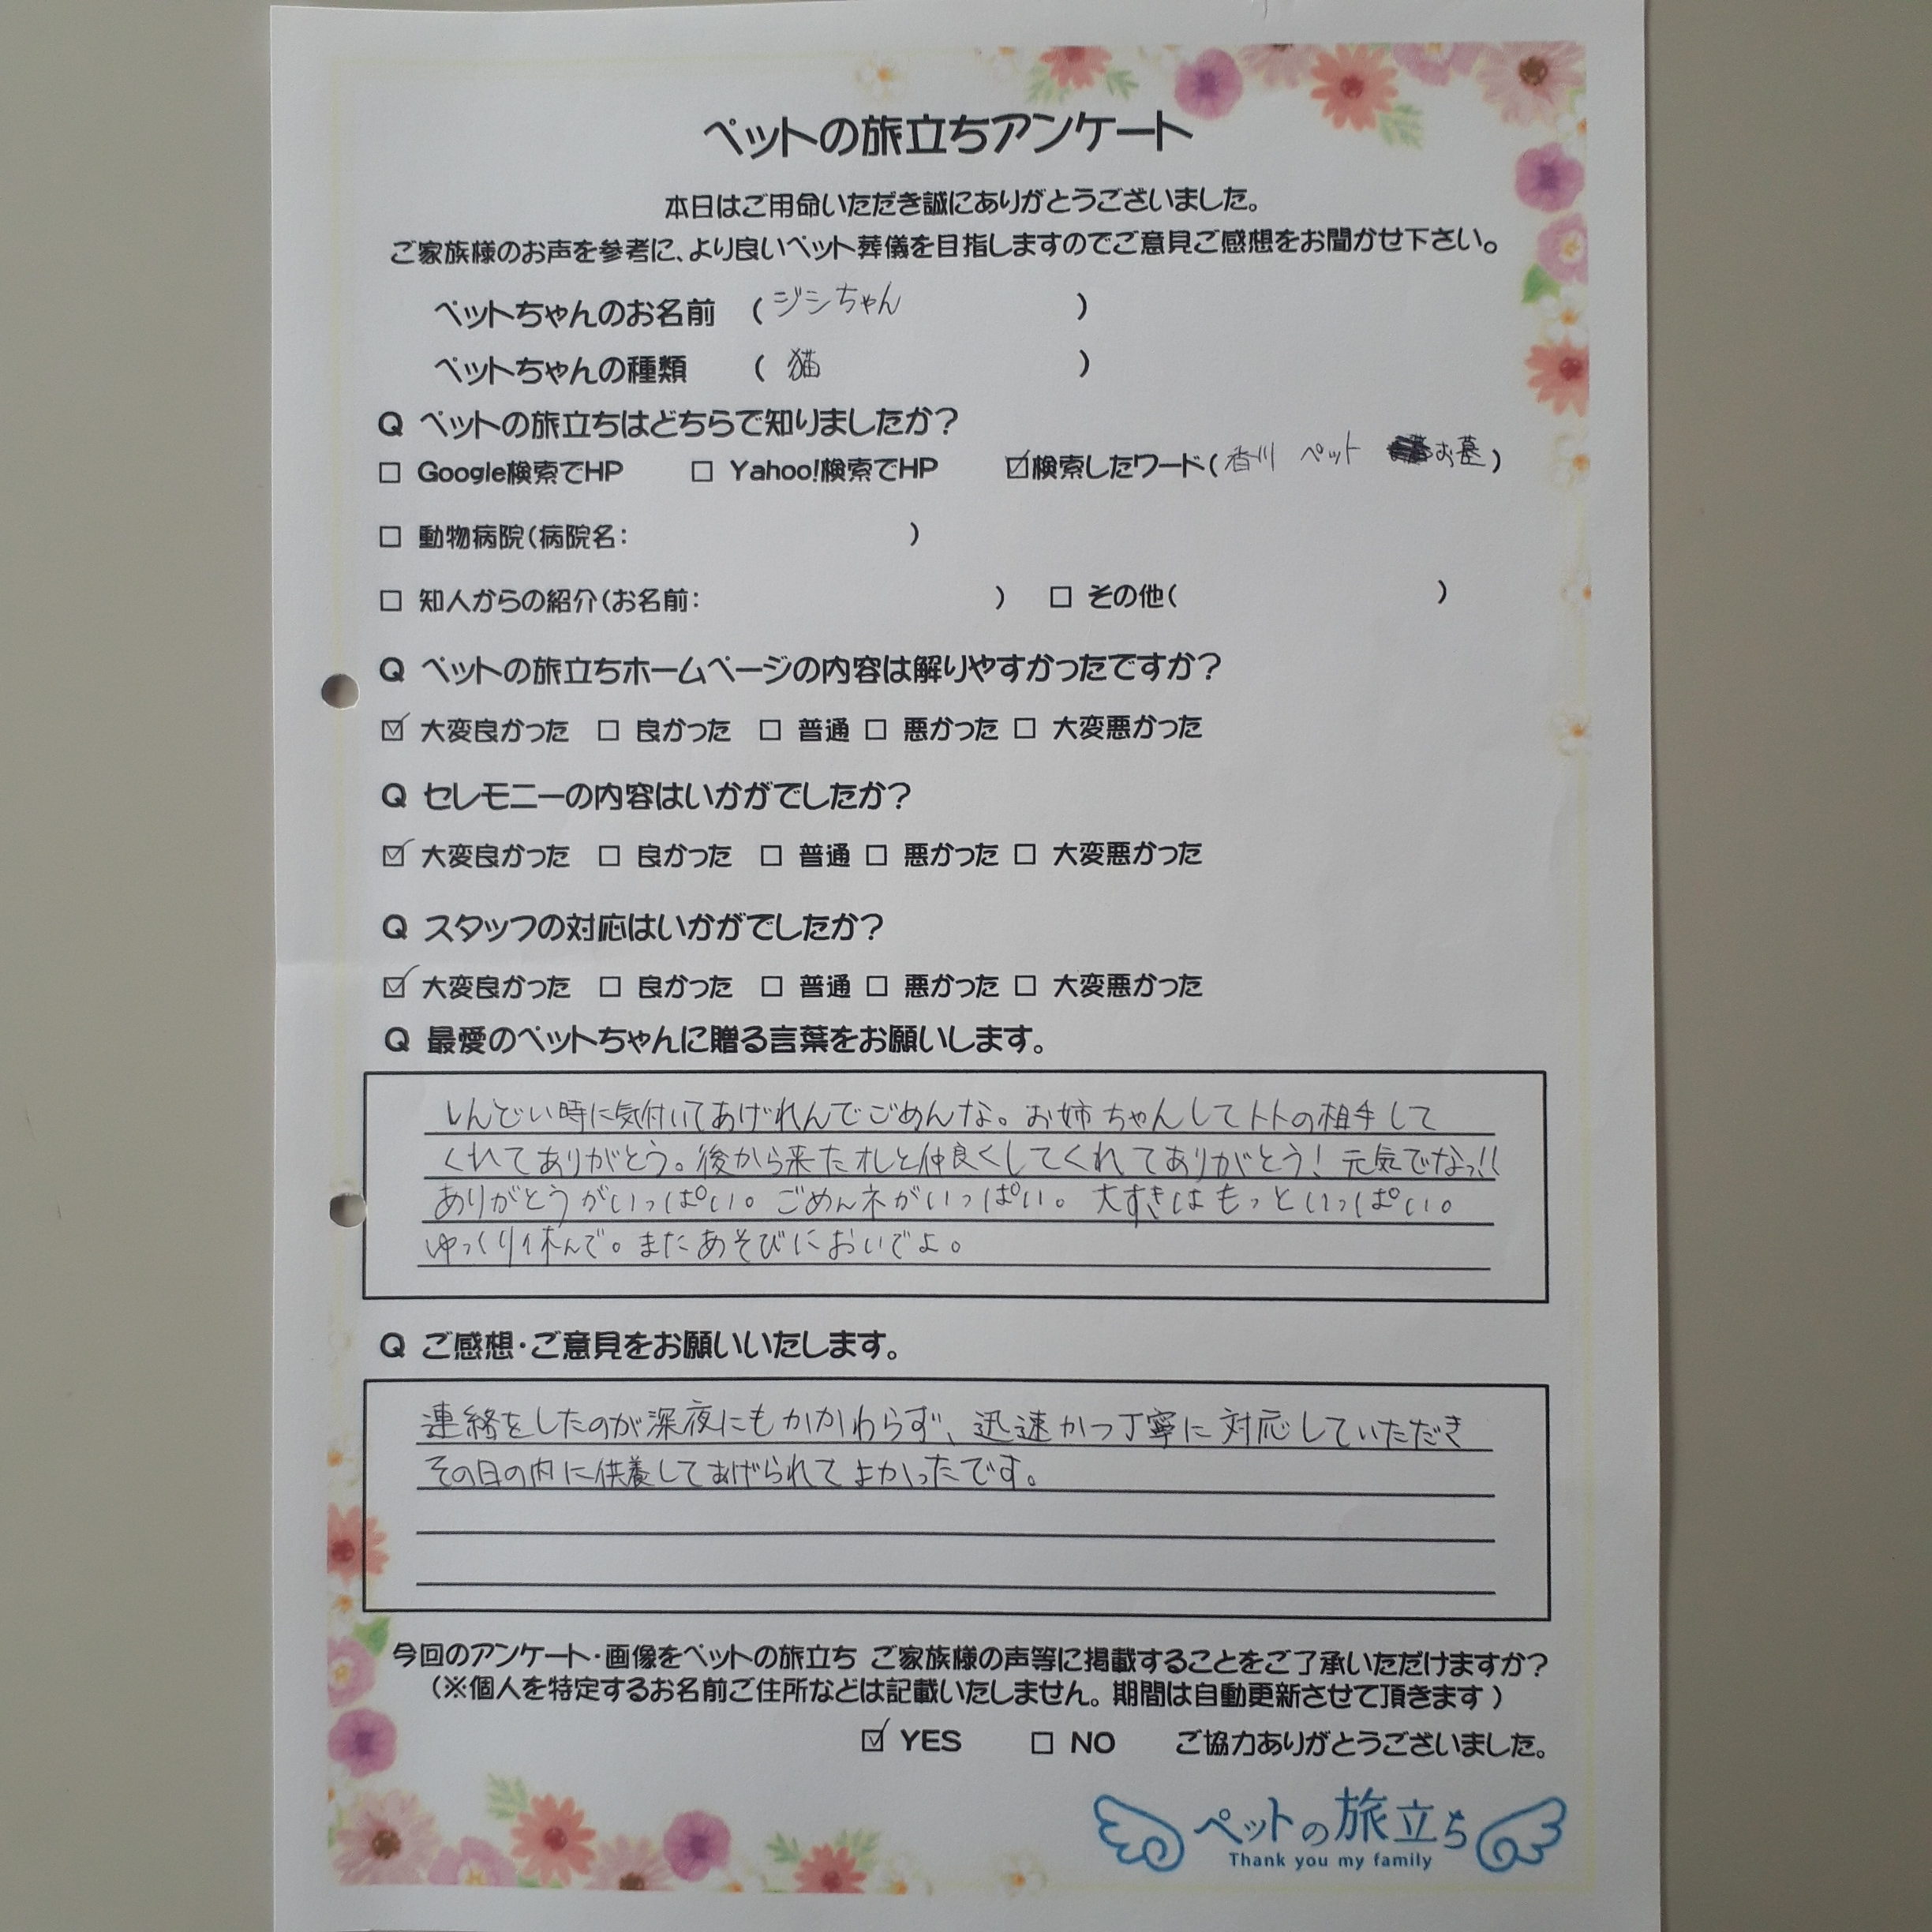 ペットの旅立ちアンケート
本日はご用命いただき誠にありがとうございました。
ご家族様のお声を参考に、より良いペット葬儀を目指しますのでご意見ご感想をお聞かせ下さい。
ペットちゃんのお名前 (ジシちゃん)
ペットちゃんの種類 (猫)
Q ペットの旅立ちはどちらで知りましたか?
□ Google検索でHP □ Yahoo!検索でHP ☑検索したワード(香川 ペット お墓)
□ 動物病院(病院名: )
□ 知人からの紹介(お名前: ) □ その他( )
Q ペットの旅立ちホームページの内容は解りやすかったですか?
☑ 大変良かった □ 良かった □ 普通 □ 悪かった □ 大変悪かった
Q セレモニーの内容はいかがでしたか?
☑ 大変良かった □ 良かった □ 普通 □ 悪かった □ 大変悪かった
Q スタッフの対応はいかがでしたか?
☑ 大変良かった □ 良かった □ 普通 □ 悪かった □ 大変悪かった
Q 最愛のペットちゃんに贈る言葉をお願いします。
しんどい時に気付いてあげれんでごめんな。お姉ちゃんしてトトの相手して
くれてありがとう。後から来たオレと仲良くしてくれてありがとう! 元気でなっ!!
ありがとうがいっぱい。ごめんネがいっぱい。大すきはもっといっぱい。
ゆっくり休んで。またあそびにおいでよ。
Q ご感想・ご意見をお願いいたします。
連絡をしたのが深夜にもかかわらず、迅速かつ丁寧に対応していただき
その日の内に供養してあげられてよかったです。
今回のアンケート・画像をペットの旅立ち ご家族様の声等に掲載することをご了承いただけますか?
(※個人を特定するお名前ご住所などは記載いたしません。期間は自動更新させて頂きます)
☑ YES □ NO ご協力ありがとうございました。
ペットの旅立ち
Thank you my family